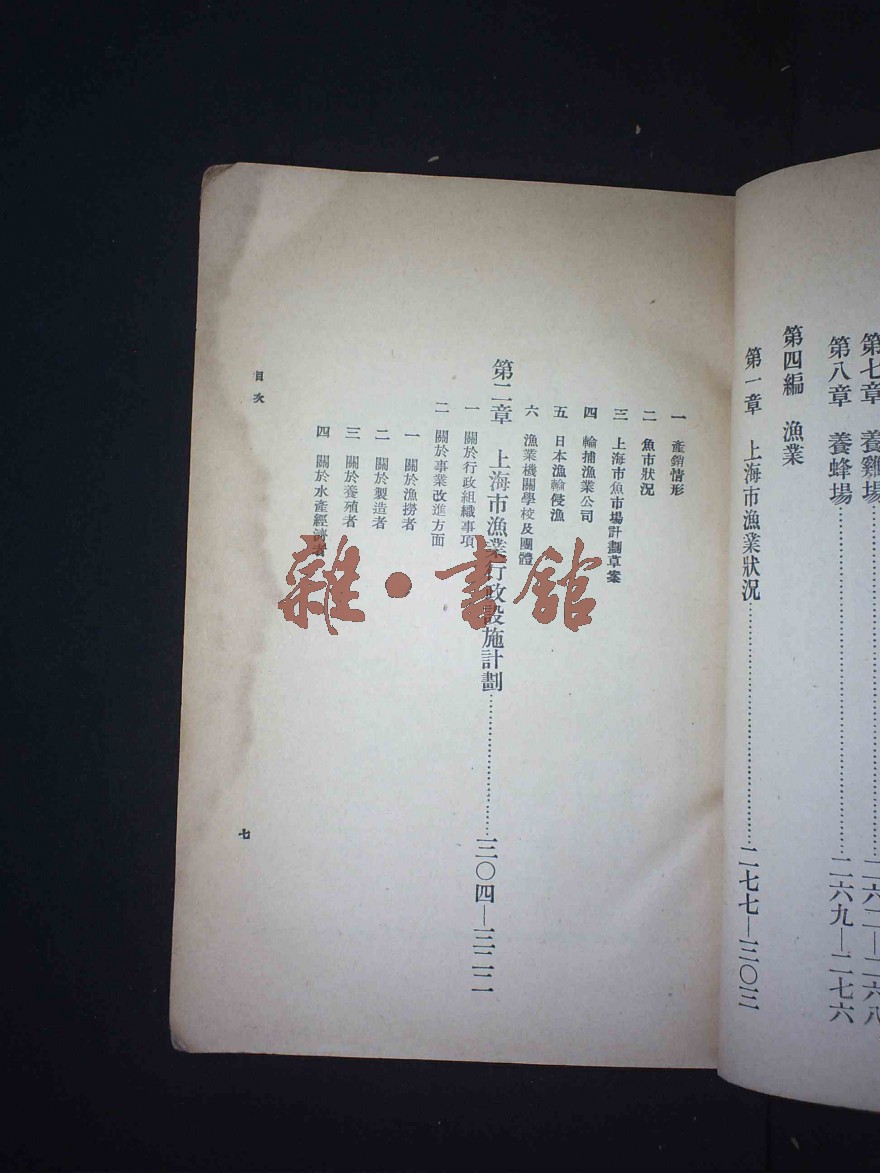 第七章　養雞場……………………二六二—二六八
第八章　養蜂場……………………二六九—二七六
第四編　漁業
第一章　上海市漁業狀況……………………二七七—三〇三
一　產銷情形
二　魚市狀況
三　上海市魚市場計劃草案
四　輪捕漁業公司
五　日本漁輪侵漁
六　漁業機關學校及團體
第二章　上海市漁業行政設施計劃……………………三〇四—三二二
一　關於行政組織事項
二　關於事業改進方面
一　關於漁撈者
二　關於製造者
三　關於養殖者
四　關於水產經濟者
目次
七
雜·書館